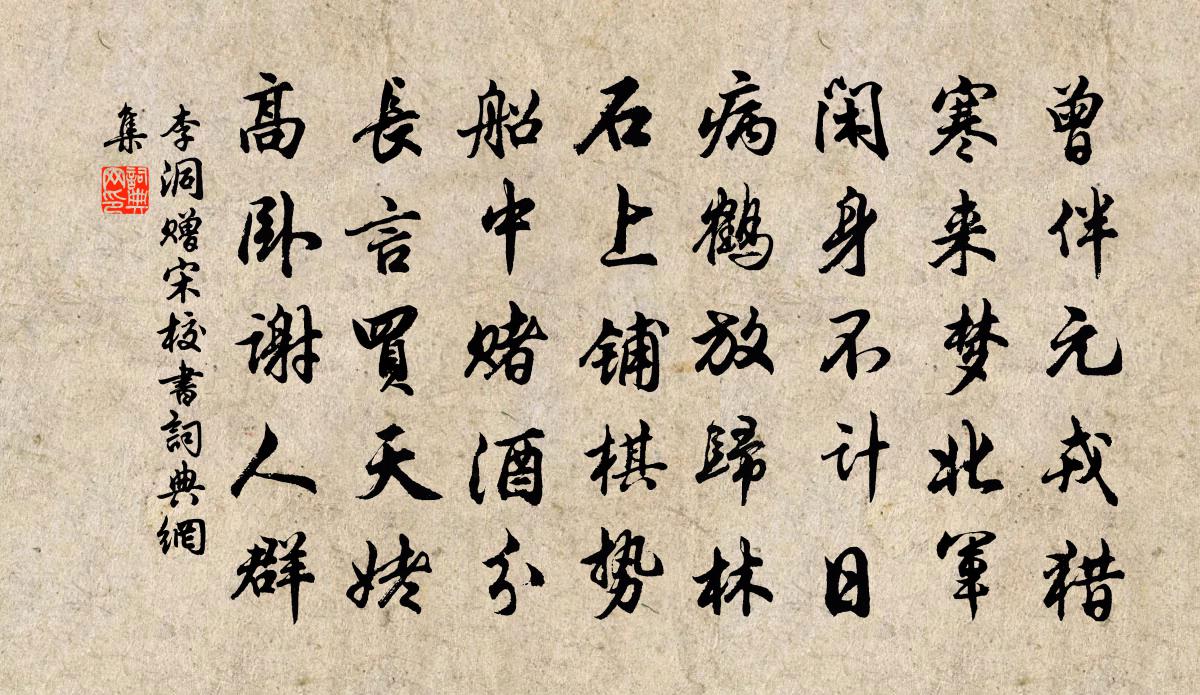 曾伴元戎猎
寒来梦北军
闲身不计日
病鹤放歸林
石上铺棋势
船中赌酒分
長言買天姥
高卧谢人群
李洞赠宋校書詞典網
集
詞典
网印